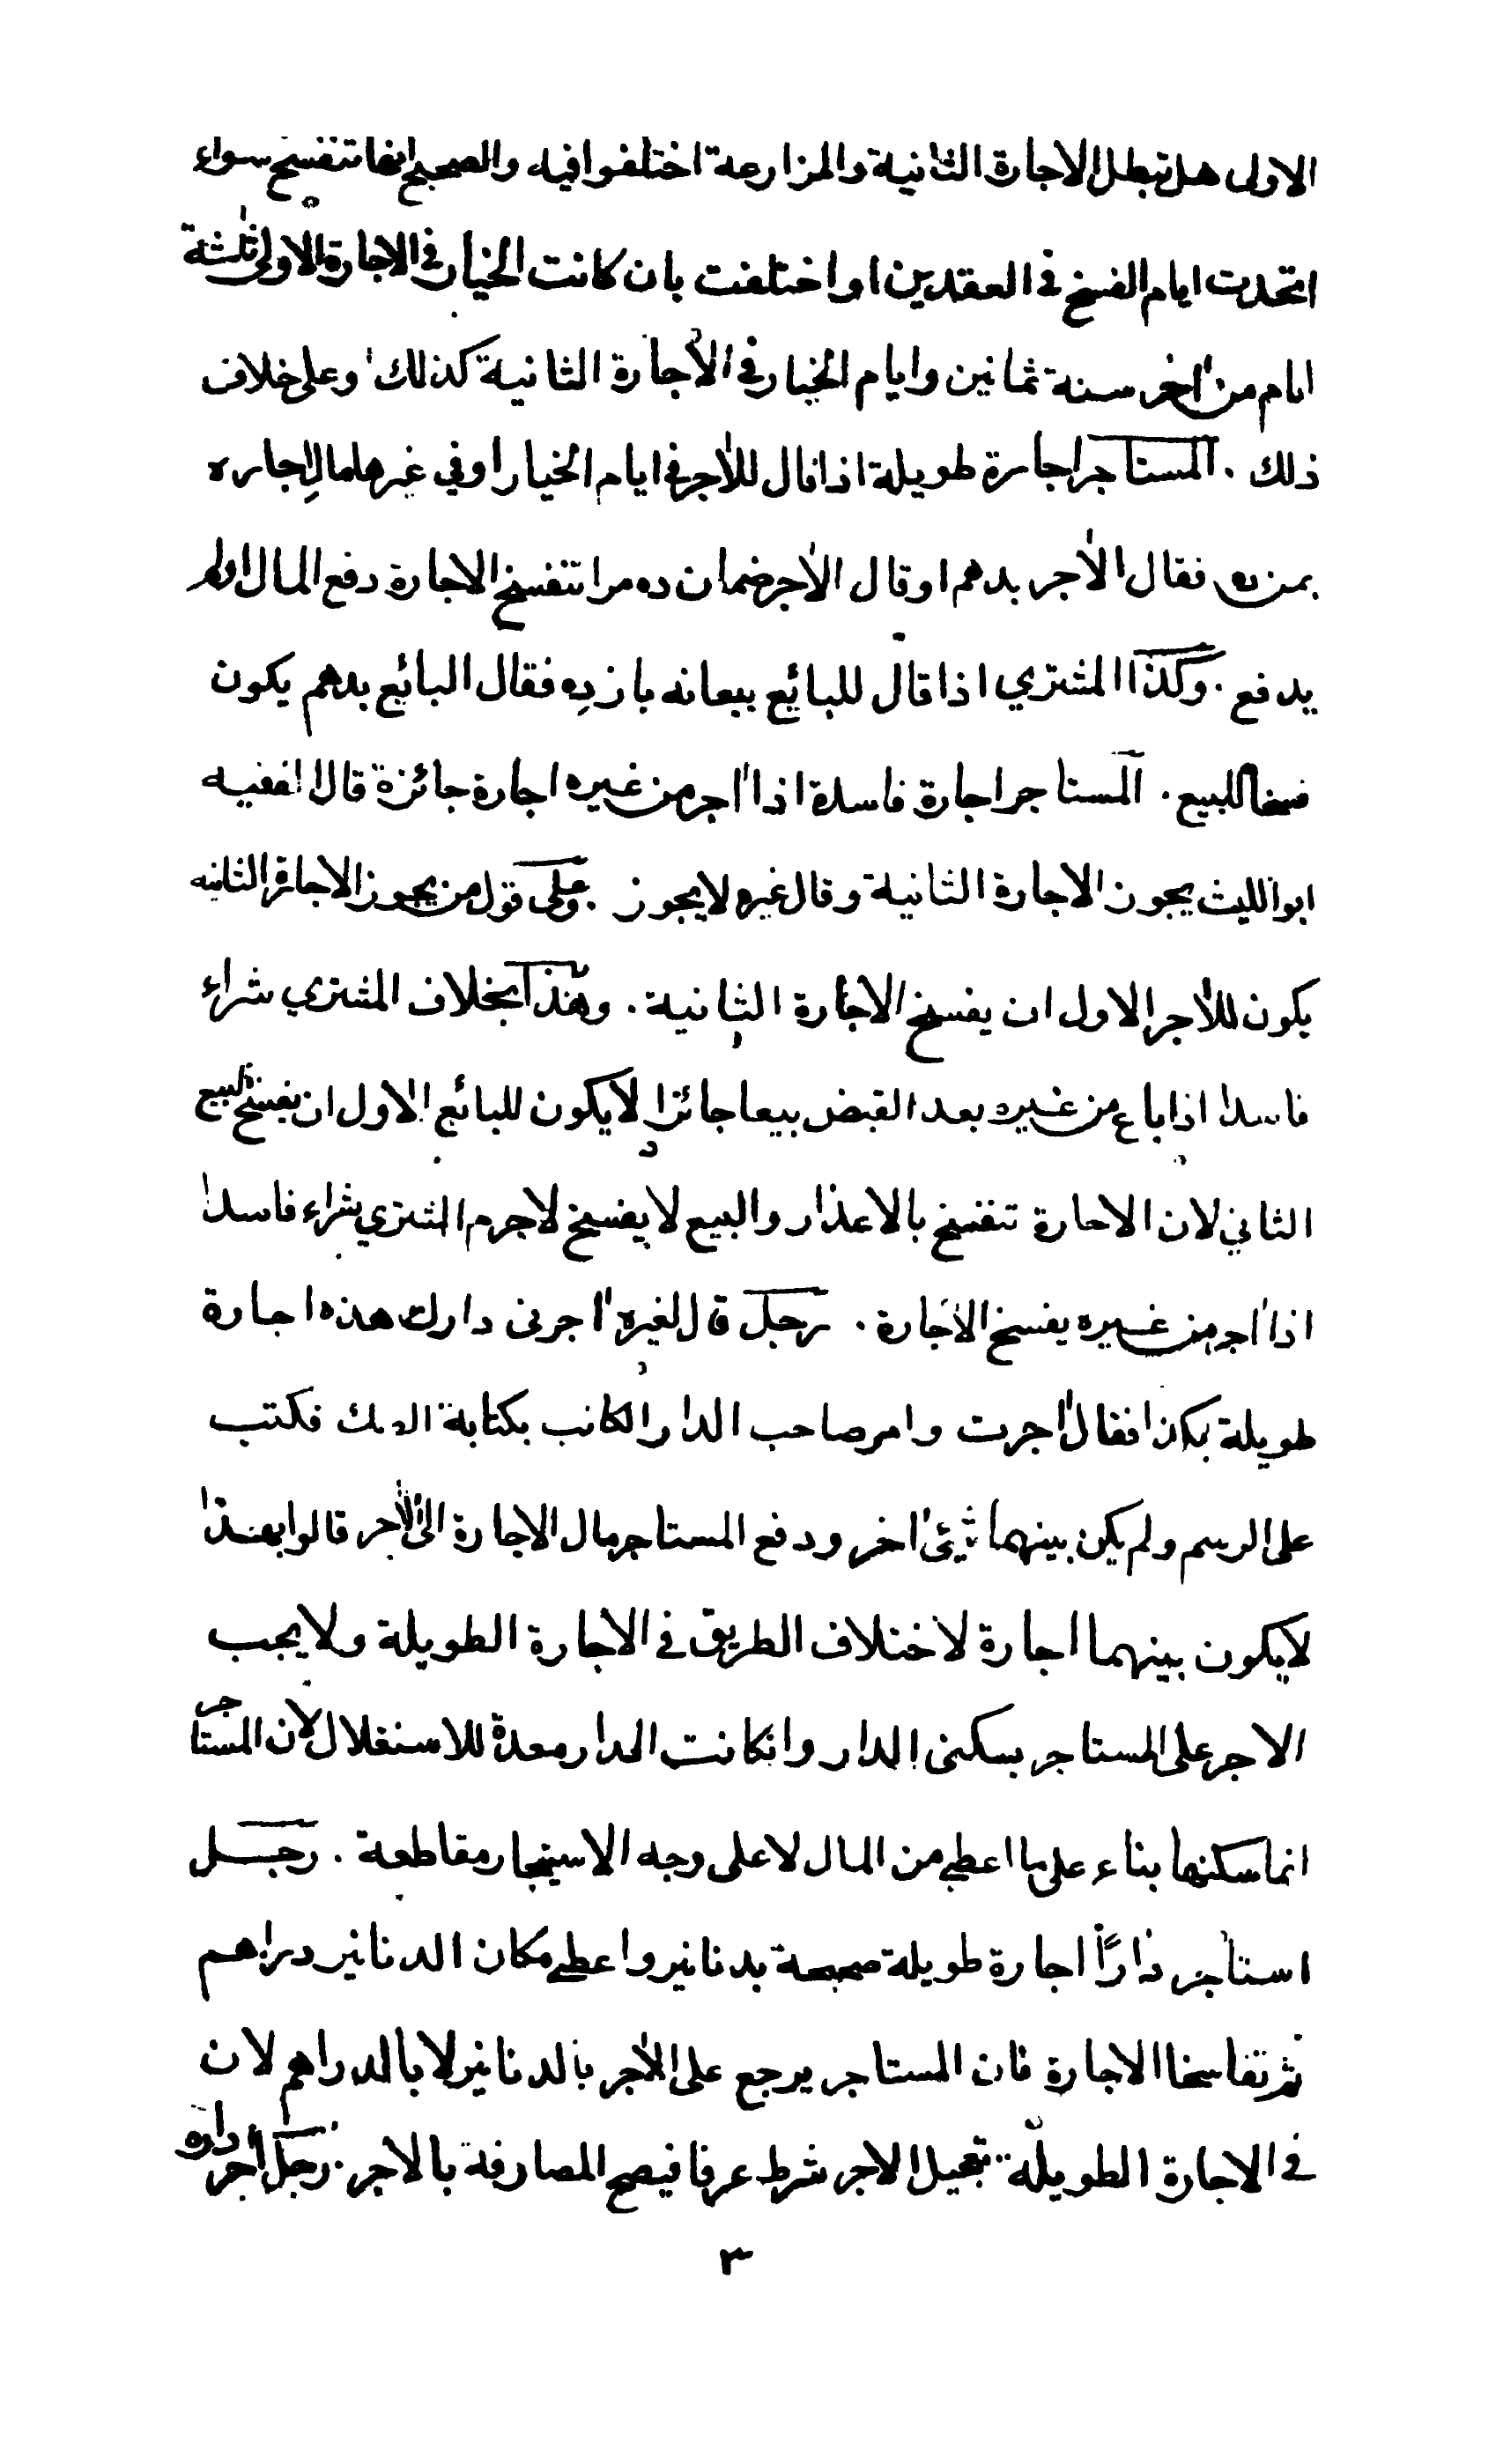 الاولى هل تبطل الاجارة الثانية والمزارعة اختلفوا فيه والصحيح انها تنفسخ سواء
اتحدت ايام الفسخ في العقدين او اختلفت بان كانت الخيار في الاجارة الاولى ثلثة
ايام من اخر سنة ثمانين وايام الخيار في الاجارة الثانية كذلك وعلى خلاف
ذلك . المستاجر اجارة طويلة اذا قال للآجر في ايام الخيار او في غيرها مال اجاره
بمن ده فقال الآجر بدهم او قال الآجر ضمان ده مرا تنفسخ الاجارة دفع المال او لم
يدفع . وكذا المشتري اذا قال للبائع بيعانه باز ده فقال البائع بدهم يكون
فسخا للبيع . المستاجر اجارة فاسدة اذا آجر من غيره اجارة جائزة قال الفقيه
ابو الليث يجوز الاجارة الثانية وقال غيره لا يجوز . وعلى قول من يجوز الاجارة الثانيه
يكون للآجر الاول ان يفسخ الاجارة الثانية . وهذا بخلاف المشتري شراء
فاسدا اذا باع من غيره بعد القبض بيعا جائزا لا يكون للبائع الاول ان يفسخ البيع
الثاني لان الاجارة تنفسخ بالاعذار والبيع لا يفسخ لا جرم المشتري شراء فاسدا
اذا آجر من غيره يفسخ الاجارة . رجل قال لغيره آجرني دارك هذه اجارة
طويلة بكذا فقال آجرت وامر صاحب الدار الكاتب بكتابة الصك فكتب
على الرسم ولم يكن بينهما شيئ آخر ودفع المستاجر مال الاجارة الى الآجر قالوا بهذا
لا يكون بينهما اجارة لاختلاف الطريق في الاجارة الطويلة ولا يجب
الاجر على المستاجر بسكنى الدار وان كانت الدار معدة للاستغلال لان المستاجر
انما سكنها بناء على ما اعطى من المال لا على وجه الاستيجار مقاطعة . رجل
استاجر دارًا اجارة طويلة صحيحة بدنانير واعطى مكان الدنانير دراهم
ثم تفاسخا الاجارة فان المستاجر يرجع على الآجر بالدنانير لا بالدراهم لان
في الاجارة الطويلة تعجيل الاجر شرط عرفا فيصح المصارفة بالاجر . رجل آجر داره
٣